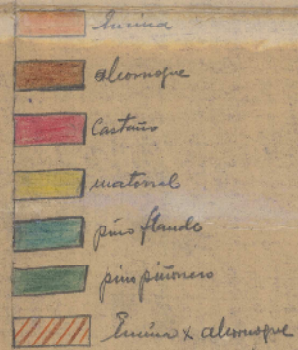 Encina
alcornoque
Castaño
matorral
pino flande
pino piñonero
Encina x alcornoque